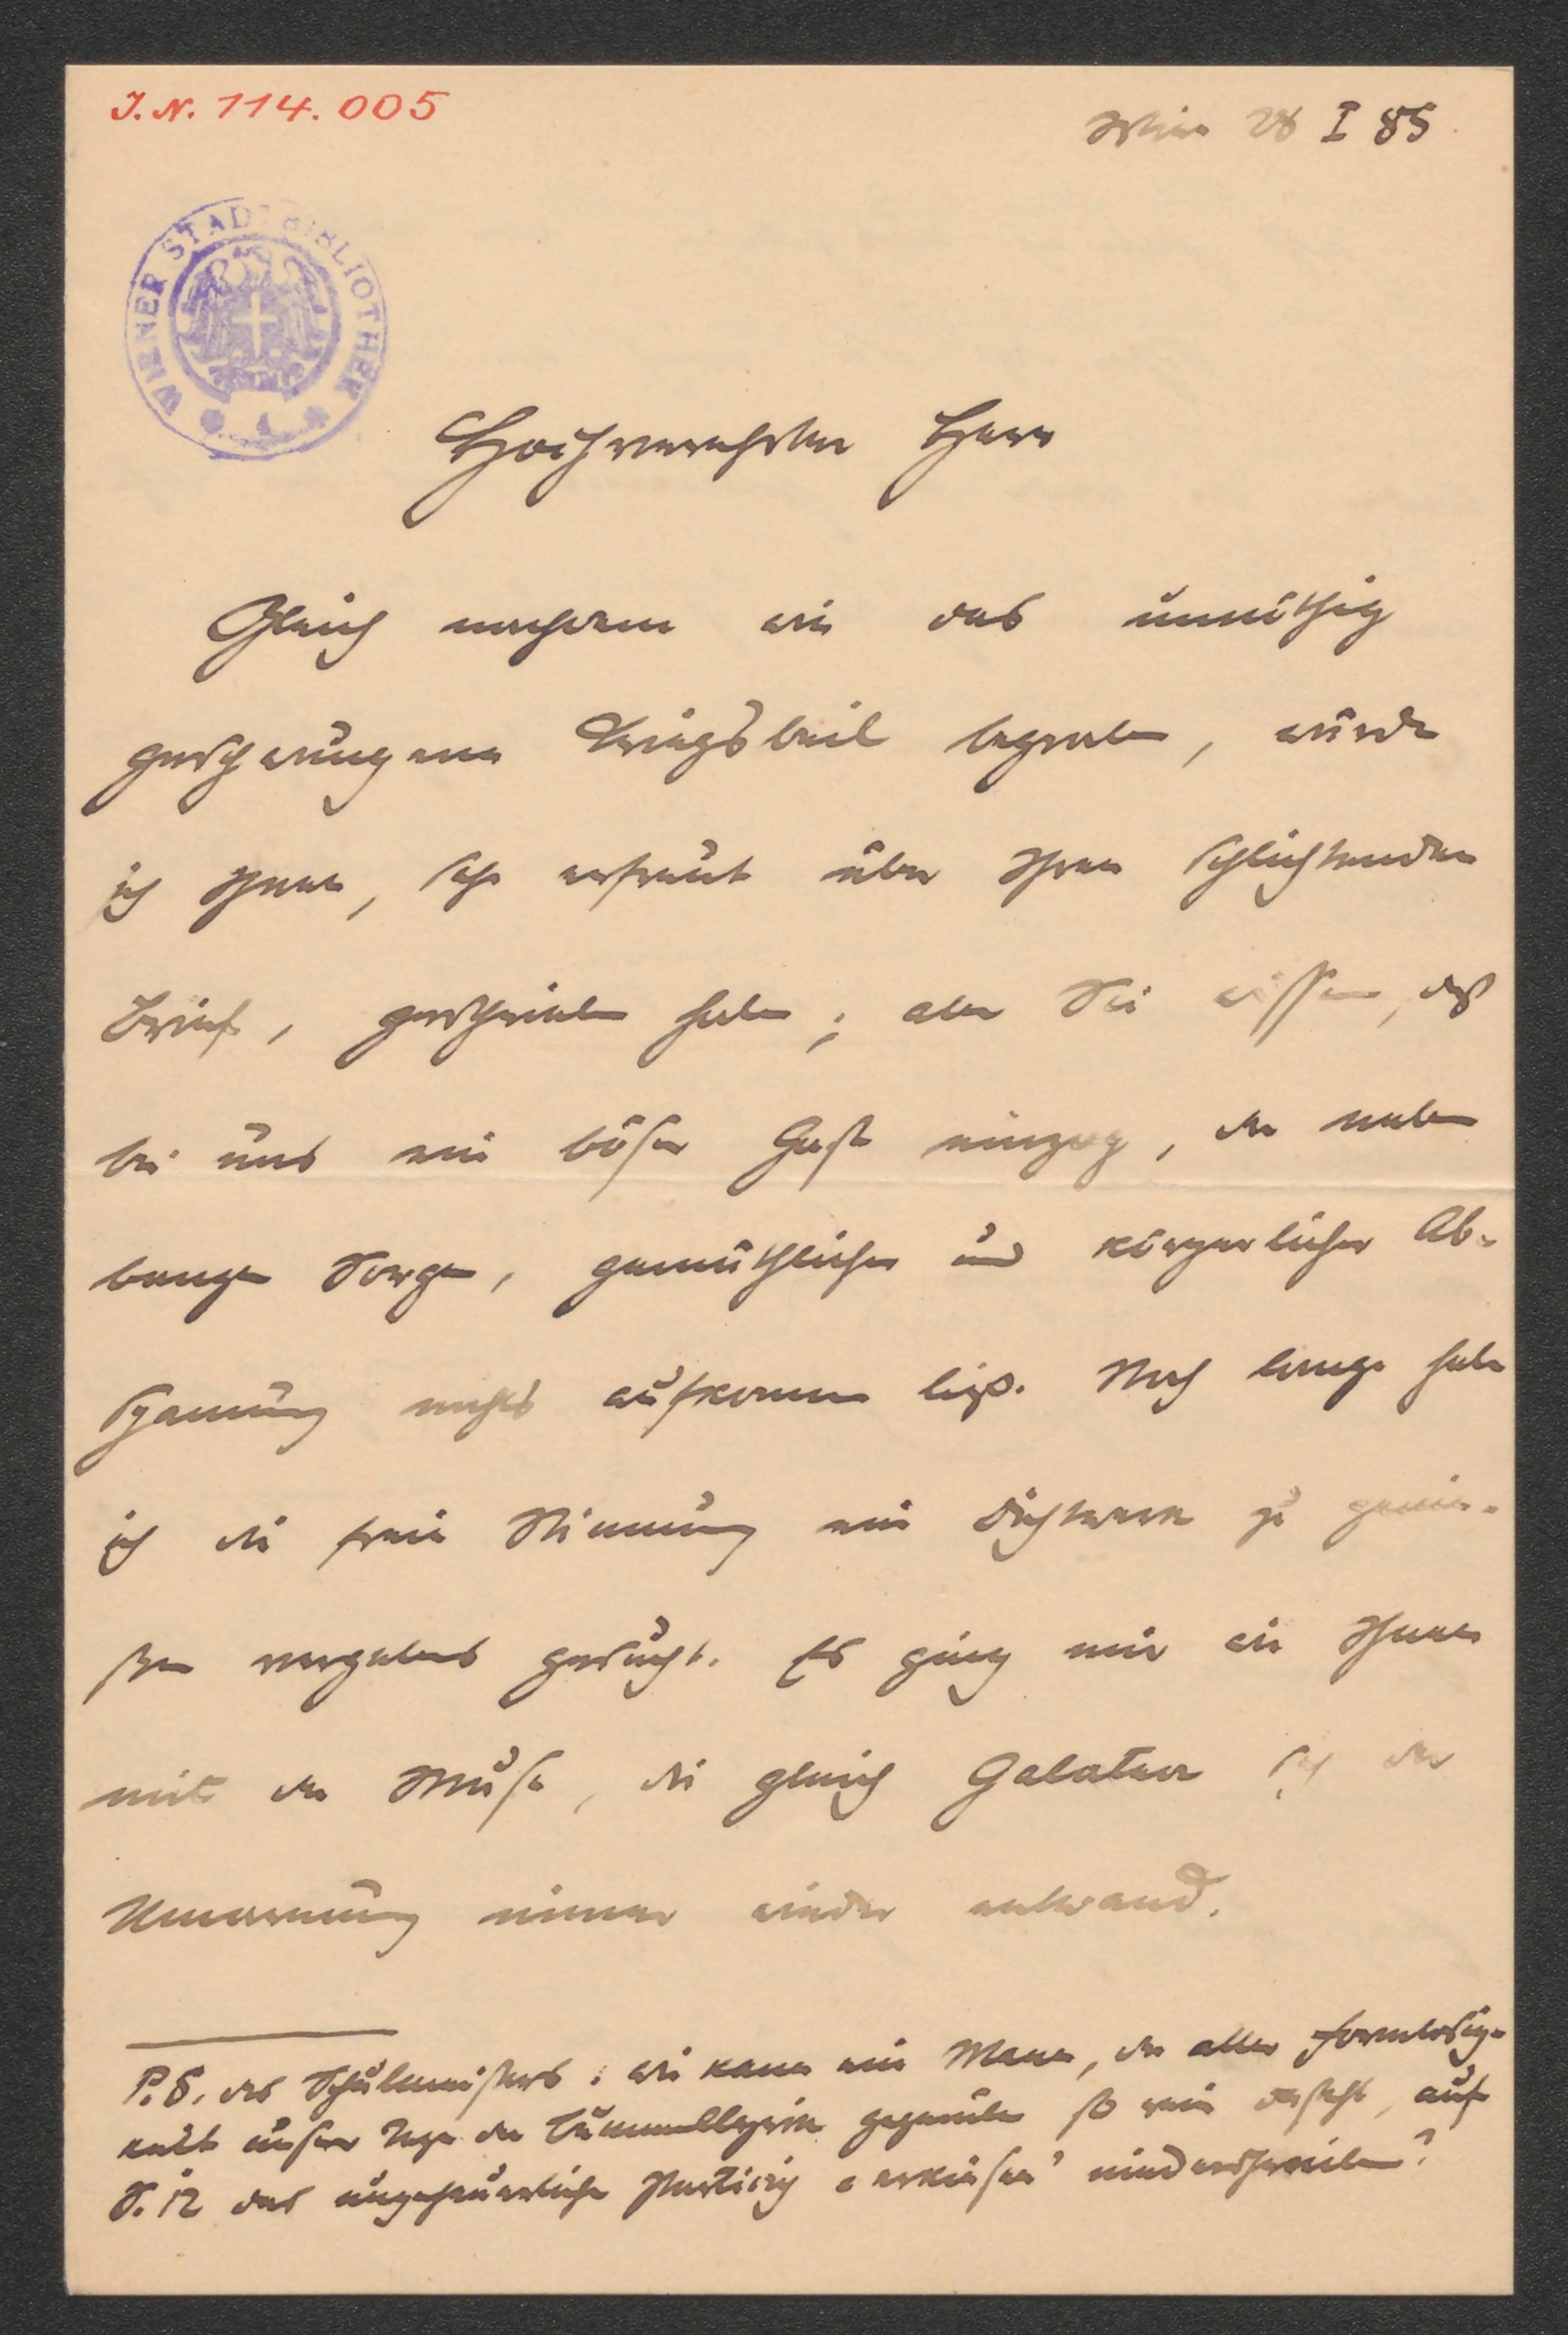 J. N. 114.005
Wien 28 I 85
WIENER STADTBIBLIOTHEK
Hochverehrter Herr
Gleich nachdem wir das unnöthig
geschwungene Kriegsbeil begraben, würde
ich Ihnen, sehr erfreut über Ihren schlichtenden
Brief, geschrieben haben; aber Sie wissen, daß
bei uns ein böser Gast einzog, der neben
bangen Sorgen, gemüthlicher und körperlicher Ab-
spannung nichts aufkommen ließ. Noch lange habe
ich die freie Stimmung ein Dichtwerk zu genie-
ßen vergebens gesucht. Es ging mir wie Ihnen
mit der Muse, die gleich Galatea sich der
Umarmung immer wieder entwand.
P.S. des Schulmeisters: wie kann ein Mann, der aller Formlosig-
keit unserer Tage der gegenüber so rein dasteht, auf
S. 12 das ungeheuerliche Particip "erkiesen" niederschreiben?